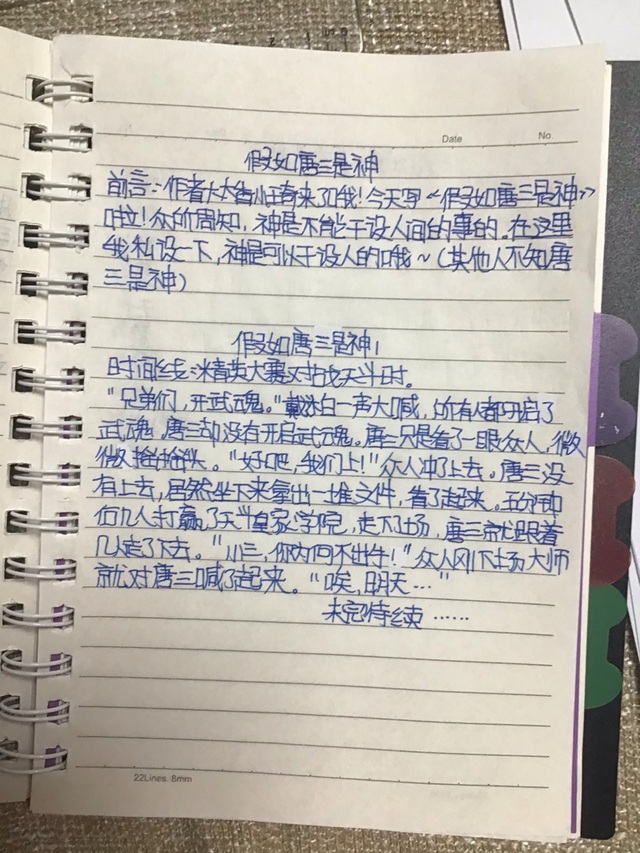 Date No.
假如唐三是神
前言:作者大大香小琦来了哦!今天写《假如唐三是神》
啦!众所周知,神是不能干设人间的事的。在这里
我私设一下,神是可以干设人的哦~(其他人不知唐
三是神)
假如唐三是神1
时间线:精英大赛对战天斗时。
"兄弟们,开武魂。"戴沐白一声大喊,所有人都开启了
武魂,唐三却没有开启武魂。唐三只是看了一眼众人,微
微摇摇头。"好吧,我们上!"众人冲了上去。唐三没
有上去,居然坐下来拿出一堆文件,看了起来。五分钟
后几人打赢了天斗皇家学院,走下了场,唐三就跟着
几人走了下去。"小三,你为何不出手!"众人刚下场大师
就对唐三喊了起来。"唉,明天…"
未完待续……
22Lines. 8mm